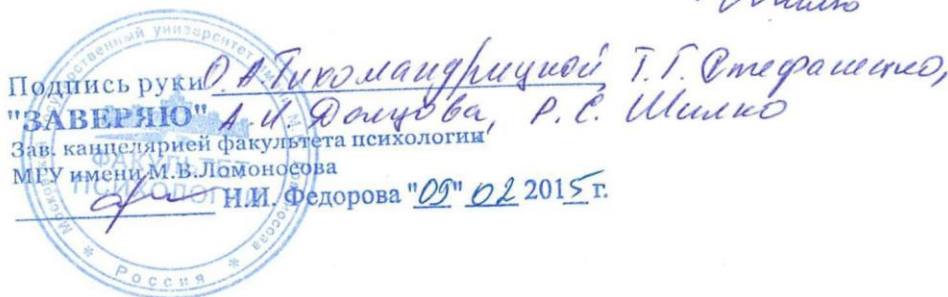 Шилко
Подпись руки О.А.Тихомандрицкой Т.Г. Стефаненко,
"ЗАВЕРЯЮ" А.И. Донцова, Р.С. Шилко
Зав. канцелярией факультета психологии
МГУ имени М.В.Ломоносова
Н.И. Федорова "09" 02 2015 г.
ФАКУЛЬТЕТ
ПСИХОЛОГИИ
Россия